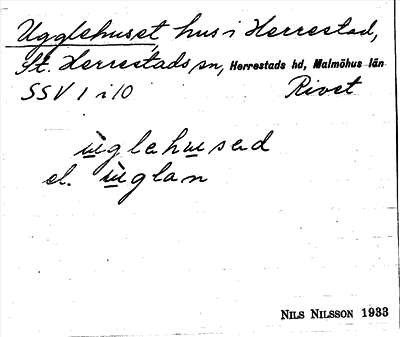 Ugglehuset, hus i Herrestad,
St. Herrestads sn, Herrestads hd, Malmöhus län
SSV 1 i 10 Rivet
ùglehusəd
el. ùglan
NILS NILSSON 1933